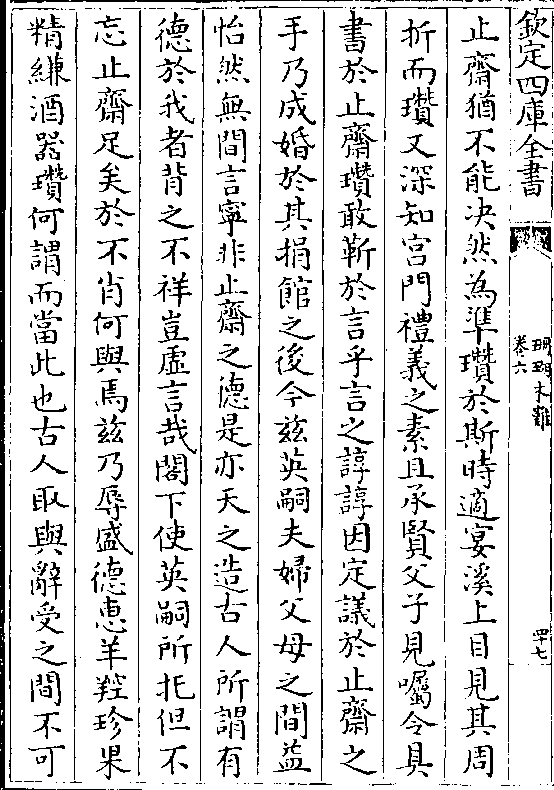 欽定四庫全書
珊瑚木難
卷六
四十七
止齋猶不能决然為準瓚於斯時適宴溪上目見其周
折而瓚又深知宫門禮義之素且承賢父子見囑令具
書於止齋瓚敢靳於言乎言之諄諄因定議於止齋之
手乃成婚於其捐館之後今兹英嗣夫婦父母之間藹
怡然無間言寧非止齋之德是亦天之造古人所謂有
德於我者背之不祥豈虚言哉閣下使英嗣所托但不
忘止齋足矣於不肖何與焉兹乃辱盛德恵羊羫珍果
精縑酒器瓚何謂而當此也古人取與辭受之間不可